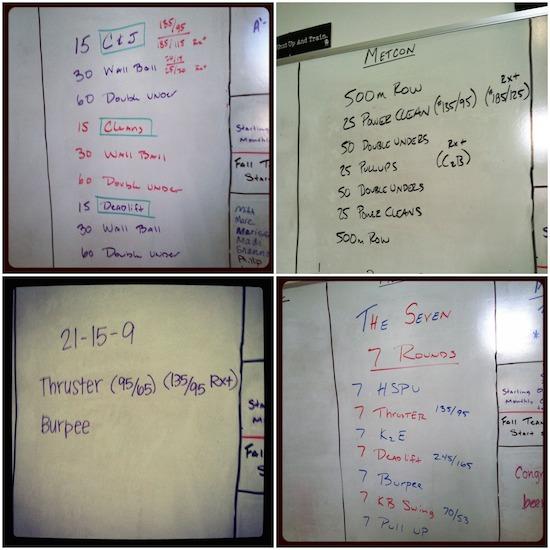 15 C & J 135/95
185/115 Rx+
30 Wall Ball 20/14
25/20 Rx+
60 Double Under
15 Cleans
30 Wall Ball
60 Double Under
15 Deadlift
30 Wall Ball
60 Double Under
A'-
Starting
Monthl
Fall T
Star
Marc
Madi
Shut Up And Train.
METCON
500m Row
25 Power Clean (#135/95) 2x+ (#185/125)
50 Double Unders
25 Pullups 2x+ (C2B)
50 Double Unders
25 Power Cleans
500m Row
21-15-9
Thruster (95/65) (135/95 Rx+)
Burpee
Sta
Mo
Fal
S
The Seven
7 Rounds
7 HSPU
7 Thruster 135/95
7 K2E
7 Deadlift 245/165
7 Burpee
7 KB Swing 70/53
7 Pull up
Starling
Monthly
Fall Tea
Start
Congr
bee